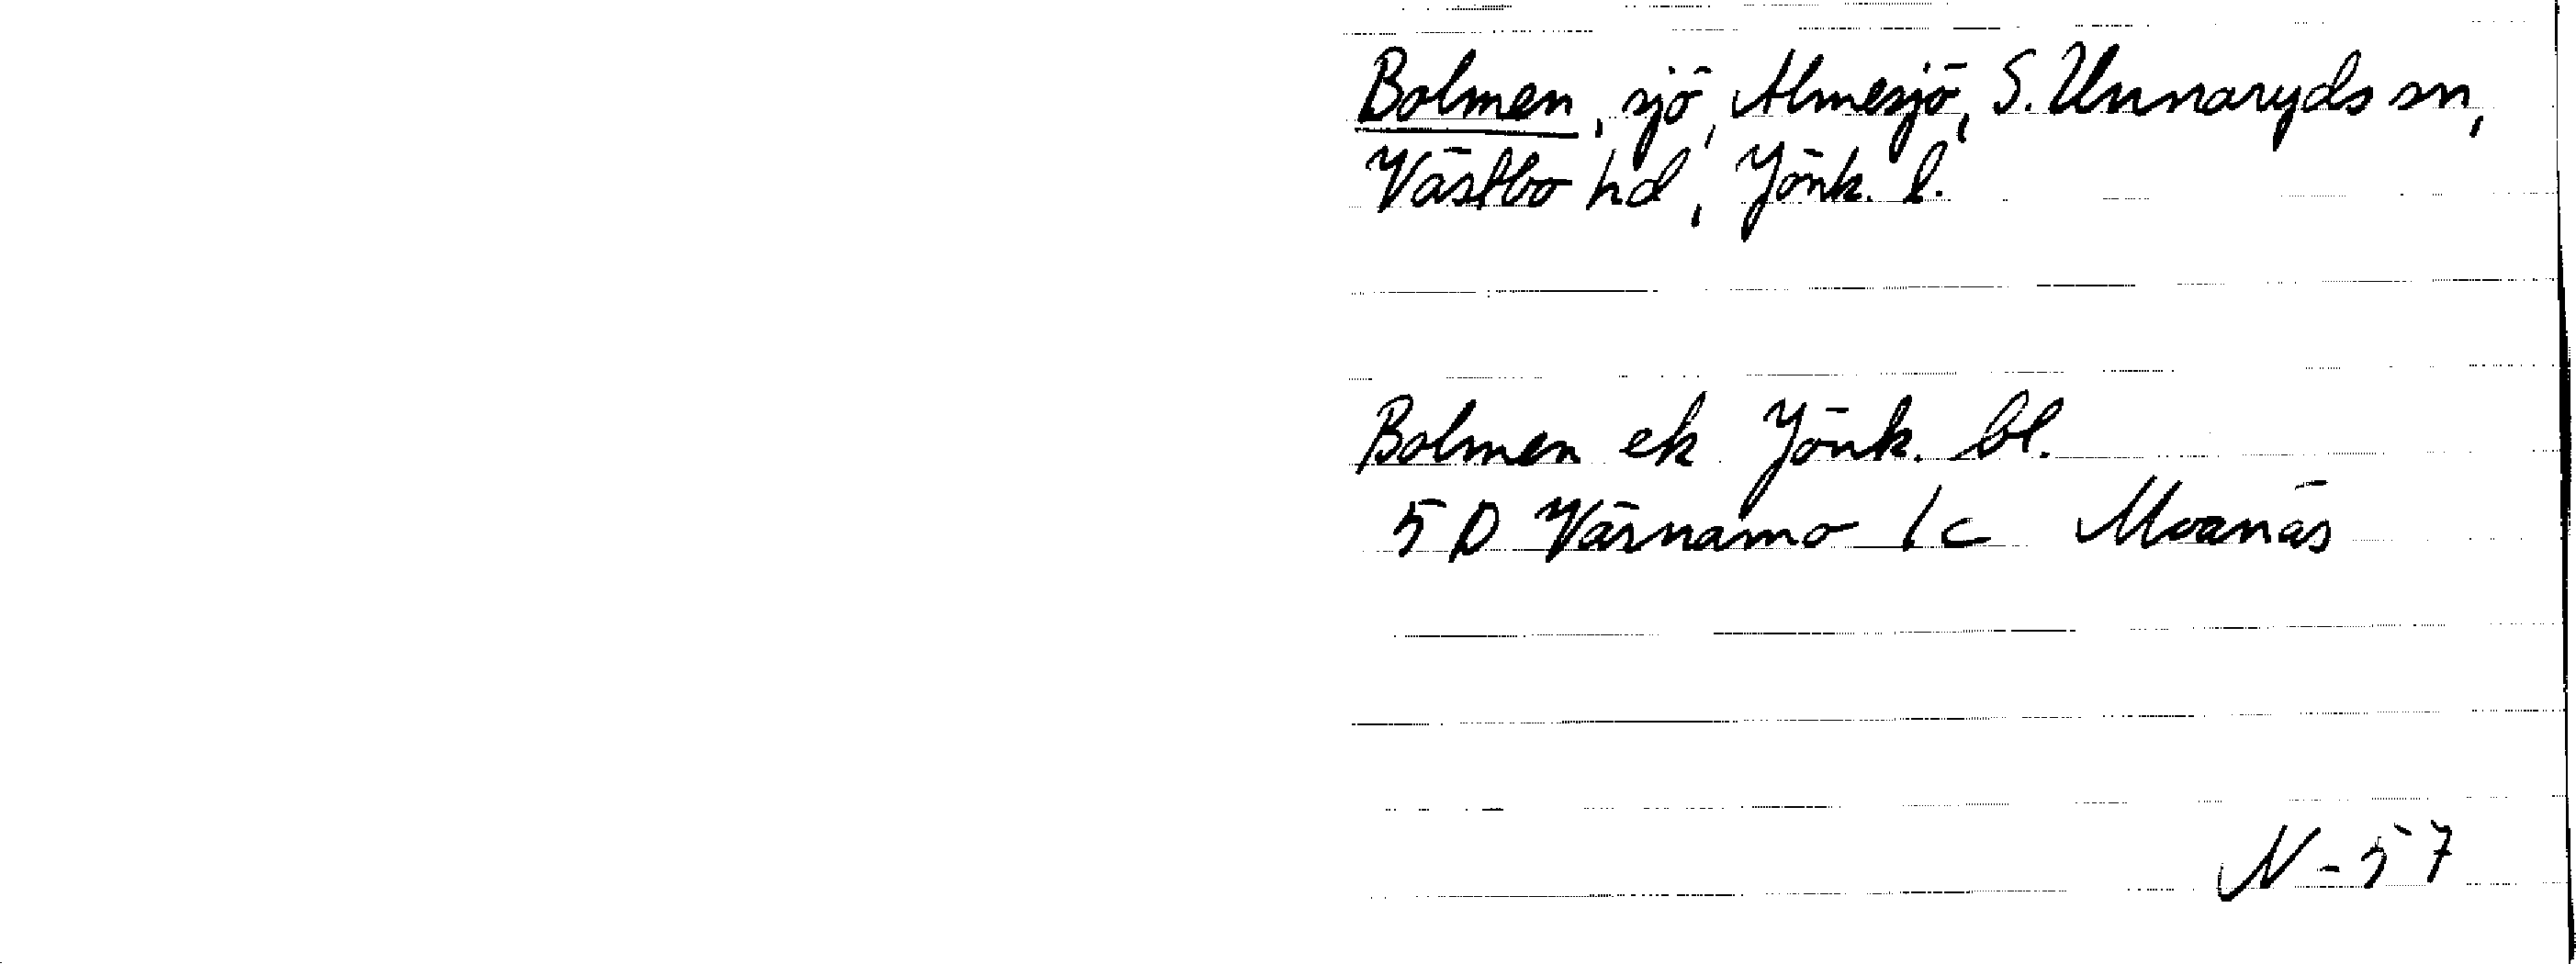 Bolmen, sjö, Almesjö, S. Unnaryds sn,
Västbo hd, Jönk. l.
Bolmen ek Jönk. bl.
5 D Värnamo 1c Moanäs
N-57